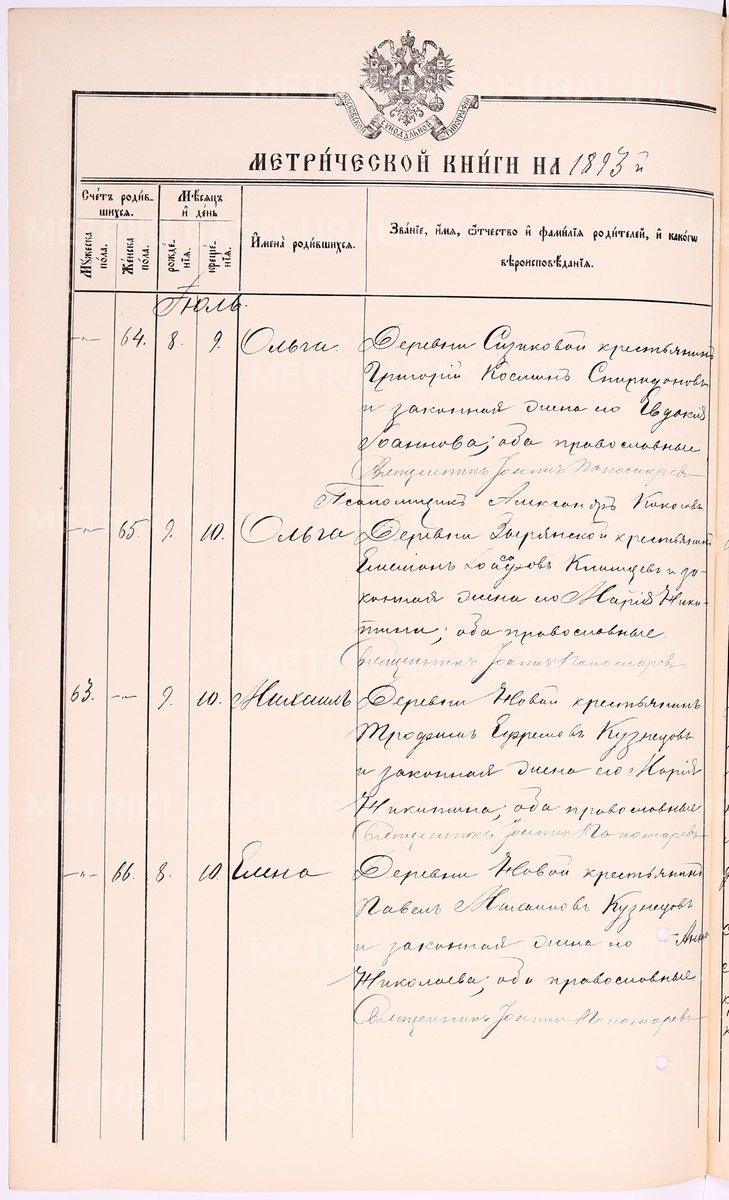 МОСКОВСКОЙ СУНОДАЛЬНОЙ ТИПОГРАФІИ
МЕТРИ́ЧЕСКОЙ КНИ́ГИ НА 1893 й
Сче́тъ роди́вшихся.
Му́жеска по́ла.
Же́нска по́ла.
Мѣ́сяцъ и҆ де́нь
рожде́нїѧ.
креще́нїѧ.
И҆мена̀ роди́вшихся.
Зва́нїе, и҆́мѧ, ѻ҆́тчество и҆ фами́лїѧ роди́телей, и҆ како́гѡ
вѣроисповѣ́данїѧ.
Іюль.
-„- 64. 8. 9. Ольга. Деревни Сизиковой крестьянинъ
Григорій Косминъ Спиридоновъ
и законная жена его Евдокія
Іоаннова; оба православные
Священникъ Іоаннъ Пономаревъ
Псаломщикъ Александръ Кокосовъ
-„- 65. 9. 10. Ольга Деревни Зырянской крестьянинъ
Емелианъ Клишцевъ и за-
конная жена его Марія Ники-
тина; оба православные.
Священникъ Іоаннъ Пономаревъ
63. -„- 9. 10. Михаилъ Деревни Новой крестьянинъ
Трофимъ Ефремовъ Кузнецовъ
и законная жена его Марія
Никитина; оба православные
Священникъ Іоаннъ Пономаревъ
-„- 66. 8. 10. Елена Деревни Новой крестьянинъ
Павелъ Михаиловъ Кузнецовъ
и законная жена его Анна
Николаева; оба православные
Священникъ Іоаннъ Пономаревъ
METRIKI.GASO-URAL.RU